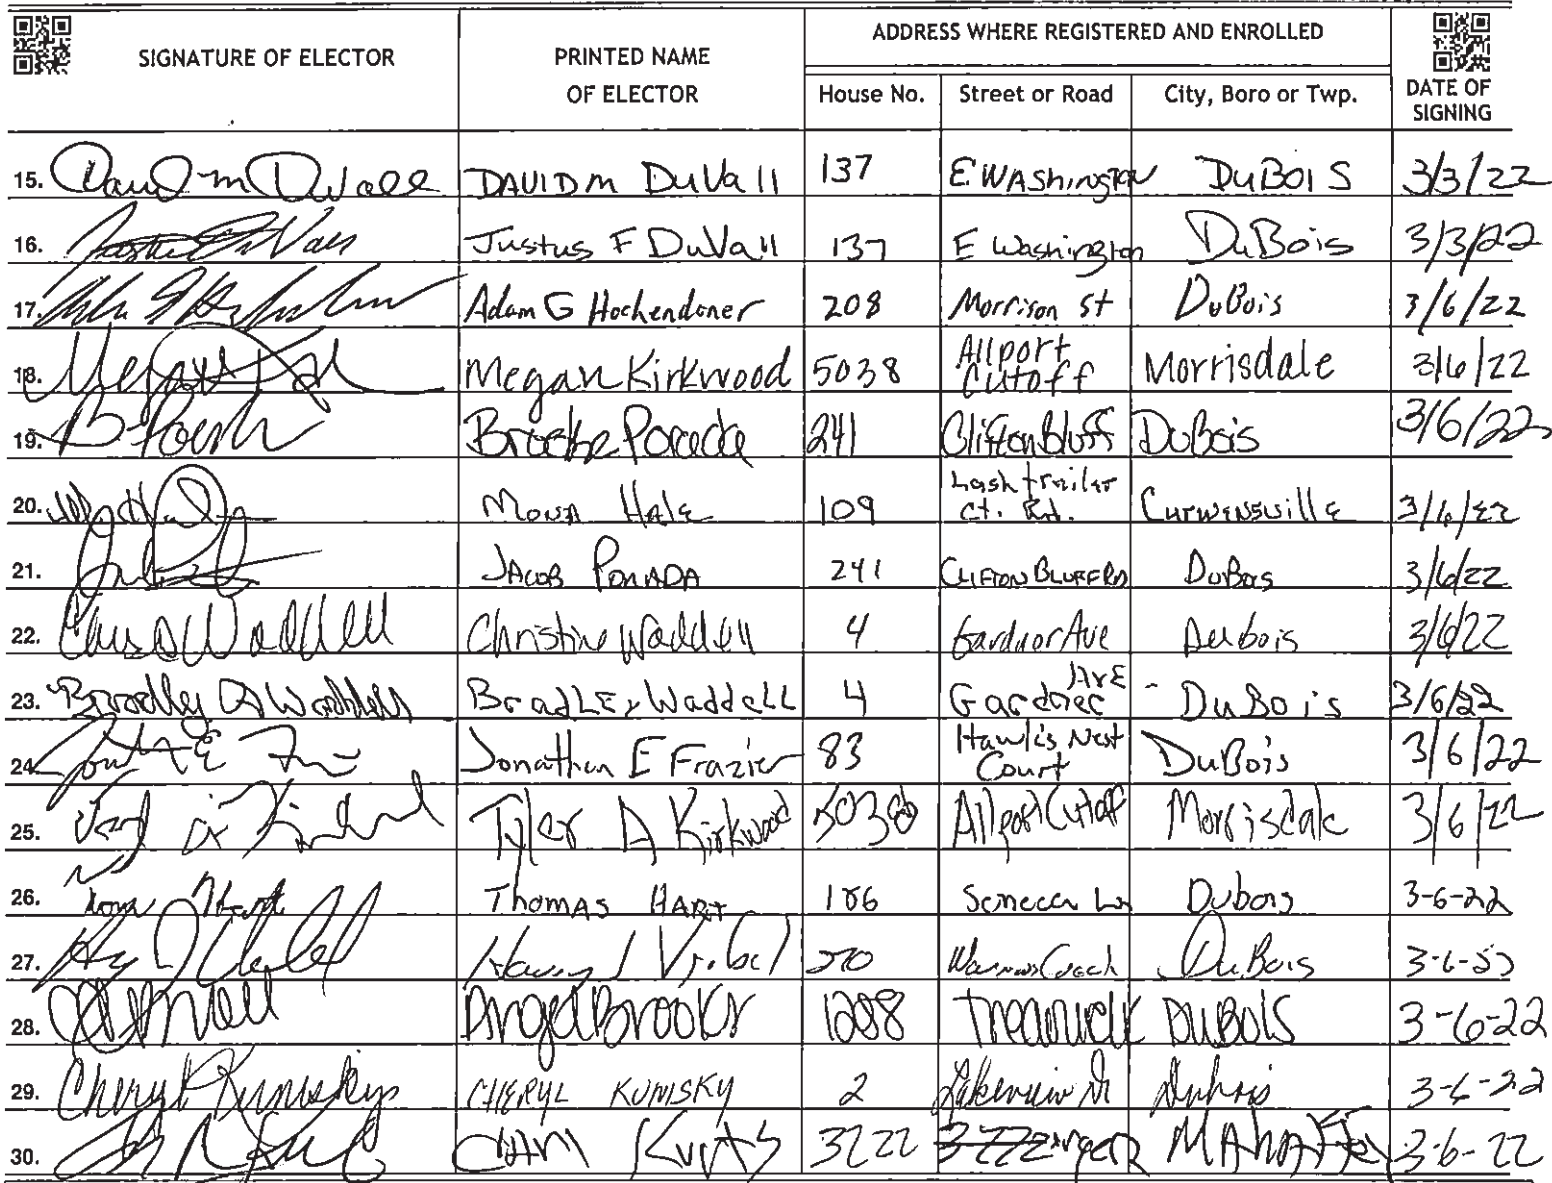 SIGNATURE OF ELECTOR
PRINTED NAME
OF ELECTOR
ADDRESS WHERE REGISTERED AND ENROLLED
House No.
Street or Road
City, Boro or Twp.
DATE OF
SIGNING
15. David M DuVall DAVID M DuVall 137 E WAShington DuBOIS 3/3/22
16. Justus F DuVall 137 E Washington DuBois 3/3/22
17. Adam G Hochendoner 208 Morrison St DuBois 3/6/22
Allport
18. Megan Kirkwood 5038 Cutoff Morrisdale 3/6/22
19. Brooke 241 Clifton Bluff DuBois 3/6/22
Lash trailer
20. Mona Hale 109 Ct. Rd. Curwensville 3/6/22
21. JACOB 241 CLIFTON BLUFF RD DuBois 3/6/22
22. Christine Waddell 4 Gardner Ave Dubois 3/6/22
Ave
23. Bradley Waddell BradLEy WaddeLL 4 Gardner DuBois 3/6/22
Hawks Nest
24. Jonathan E Frazier 83 Court DuBois 3/6/22
25. Tyler A Kirkwood 5038 Allport Cutoff Morrisdale 3/6/22
26. Thomas HART 186 Seneca Ln Dubois 3-6-22
27. 270 DuBois
28. Angel Brooks 1288 Treasure Lk DUBOIS 3-6-22
29. Cheryl Kunisky CHERYL KUNISKY 2 Lakeview Dr Dubois 3-6-22
30. 3222 MAHAFFEY 3-6-22